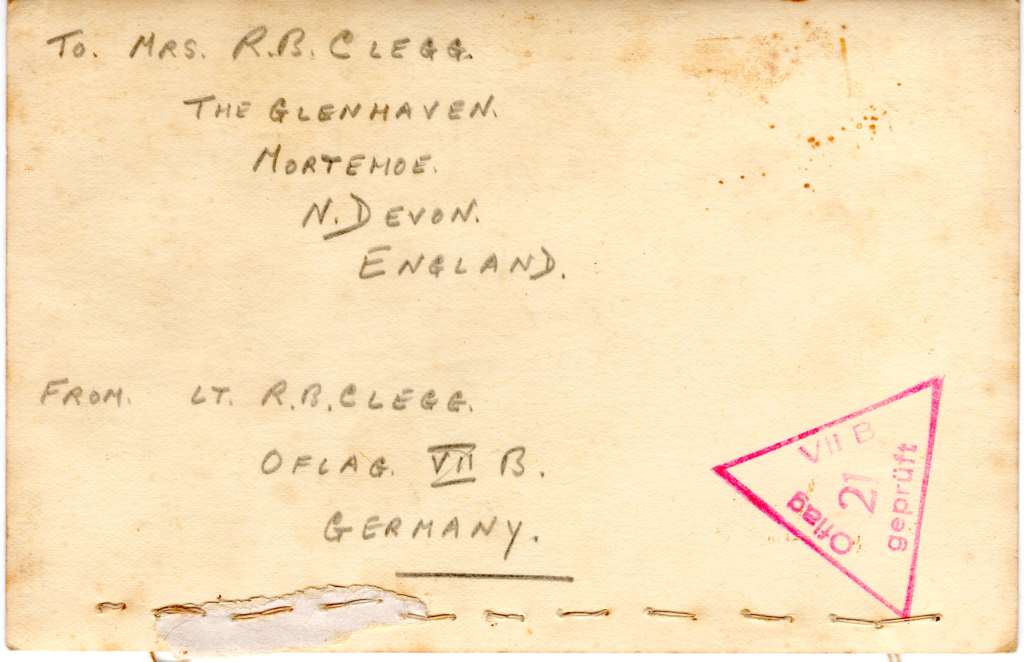 To. MRS. R.B. CLEGG.
THE GLENHAVEN.
MORTEHOE.
N. DEVON.
ENGLAND.
FROM. LT. R.B. CLEGG.
OFLAG. VII B.
GERMANY.
Oflag VII B
21
geprüft